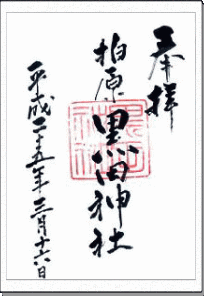 奉拝
柏原黒田神社
平成二十五年三月十六日